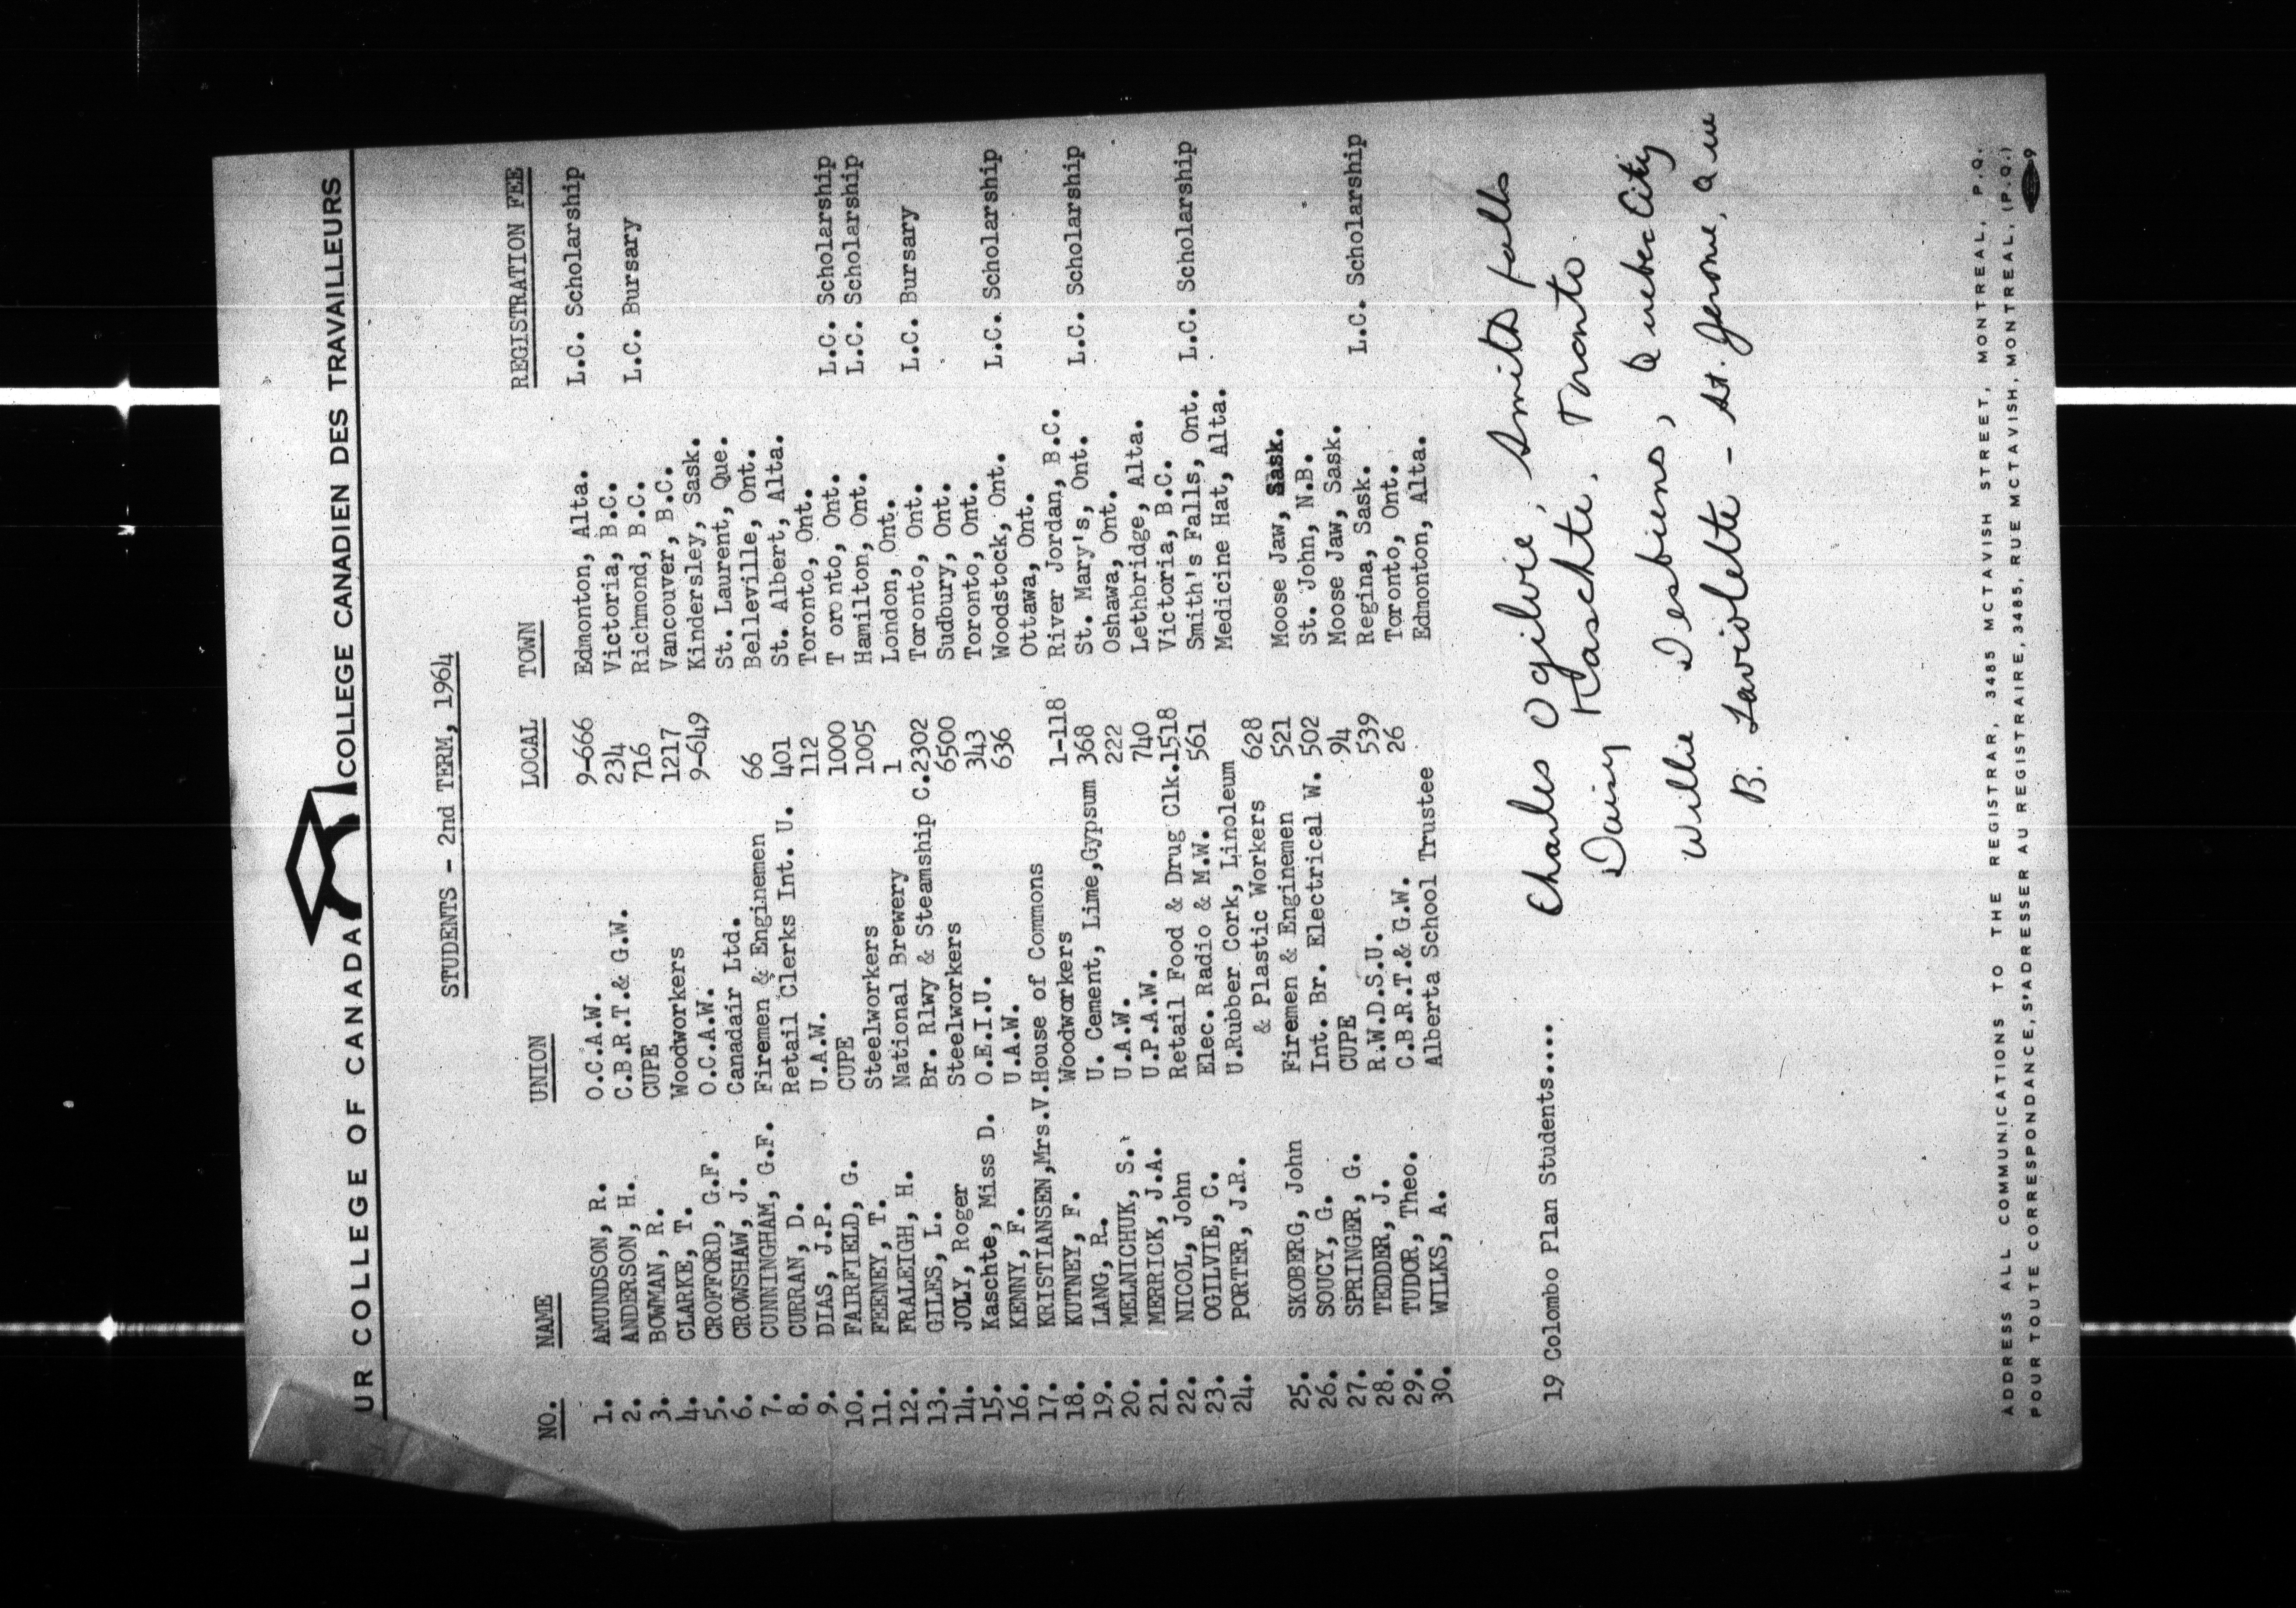 UR COLLEGE OF CANADA COLLEGE CANADIEN DES TRAVAILLEURS
STUDENTS - 2nd TERM, 1964
NO. NAME UNION LOCAL TOWN REGISTRATION FEE
1. AMUNDSON, R. O.C.A.W. 9-666 Edmonton, Alta. L.C. Scholarship
2. ANDERSON, H. C.B.R.T.& G.W. 234 Victoria, B.C.
3. BOWMAN, R. CUPE 716 Richmond, B.C. L.C. Bursary
4. CLARKE, T. Woodworkers 1217 Vancouver, B.C.
5. CROFFORD, G.F. O.C.A.W. 9-649 Kindersley, Sask.
6. CROWSHAW, J. Canadair Ltd. St. Laurent, Que.
7. CUNNINGHAM, G.F. Firemen & Enginemen 66 Belleville, Ont.
8. CURRAN, D. Retail Clerks Int. U. 401 St. Albert, Alta.
9. DIAS, J.P. U.A.W. 112 Toronto, Ont.
10. FAIRFIELD, G. CUPE 1000 T oro nto, Ont. L.C. Scholarship
11. FEENEY, T. Steelworkers 1005 Hamilton, Ont. L.C. Scholarship
12. FRALEIGH, H. National Brewery 1 London, Ont.
13. GILES, L. Br. Rlwy & Steamship C.2302 Toronto, Ont. L.C. Bursary
14. JOLY, Roger Steelworkers 6500 Sudbury, Ont.
15. Kaschte, Miss D. O.E.I.U. 343 Toronto, Ont.
16. KENNY, F. U.A.W. 636 Woodstock, Ont. L.C. Scholarship
17. KRISTIANSEN,Mrs.V.House of Commons Ottawa, Ont.
18. KUTNEY, F. Woodworkers 1-118 River Jordan, B.C.
19. LANG, R. U. Cement, Lime,Gypsum 368 St. Mary's, Ont. L.C. Scholarship
20. MELNICHUK, S. U.A.W. 222 Oshawa, Ont.
21. MERRICK, J.A. U.P.A.W. 740 Lethbridge, Alta.
22. NICOL, John Retail Food & Drug Clk.1518 Victoria, B.C.
23. OGILVIE, C. Elec. Radio & M.W. 561 Smith's Falls, Ont. L.C. Scholarship
24. PORTER, J.R. U.Rubber Cork, Linoleum Medicine Hat, Alta.
& Plastic Workers 628
25. SKOBERG, John Firemen & Enginemen 521 Moose Jaw, Sask.
26. SOUCY, G. Int. Br. Electrical W. 502 St. John, N.B.
27. SPRINGER, G. CUPE 94 Moose Jaw, Sask.
28. TEDDER, J. R.W.D.S.U. 539 Regina, Sask. L.C. Scholarship
29. TUDOR, Theo. C.B.R.T.& G.W. 26 Toronto, Ont.
30. WILKS, A. Alberta School Trustee Edmonton, Alta.
19 Colombo Plan Students.... Charles Ogilvie, Smith falls
Daisy Kaschte. Toronto
Willie Desbiens, Quebec City
B. Laviolette - St. Jerome, Que
ADDRESS ALL COMMUNICATIONS TO THE REGISTRAR, 3485 MCTAVISH STREET, MONTREAL, P.Q.
POUR TOUTE CORRESPONDANCE, S'ADRESSER AU REGISTRAIRE, 3485, RUE MCTAVISH, MONTREAL, (P.Q.)
9